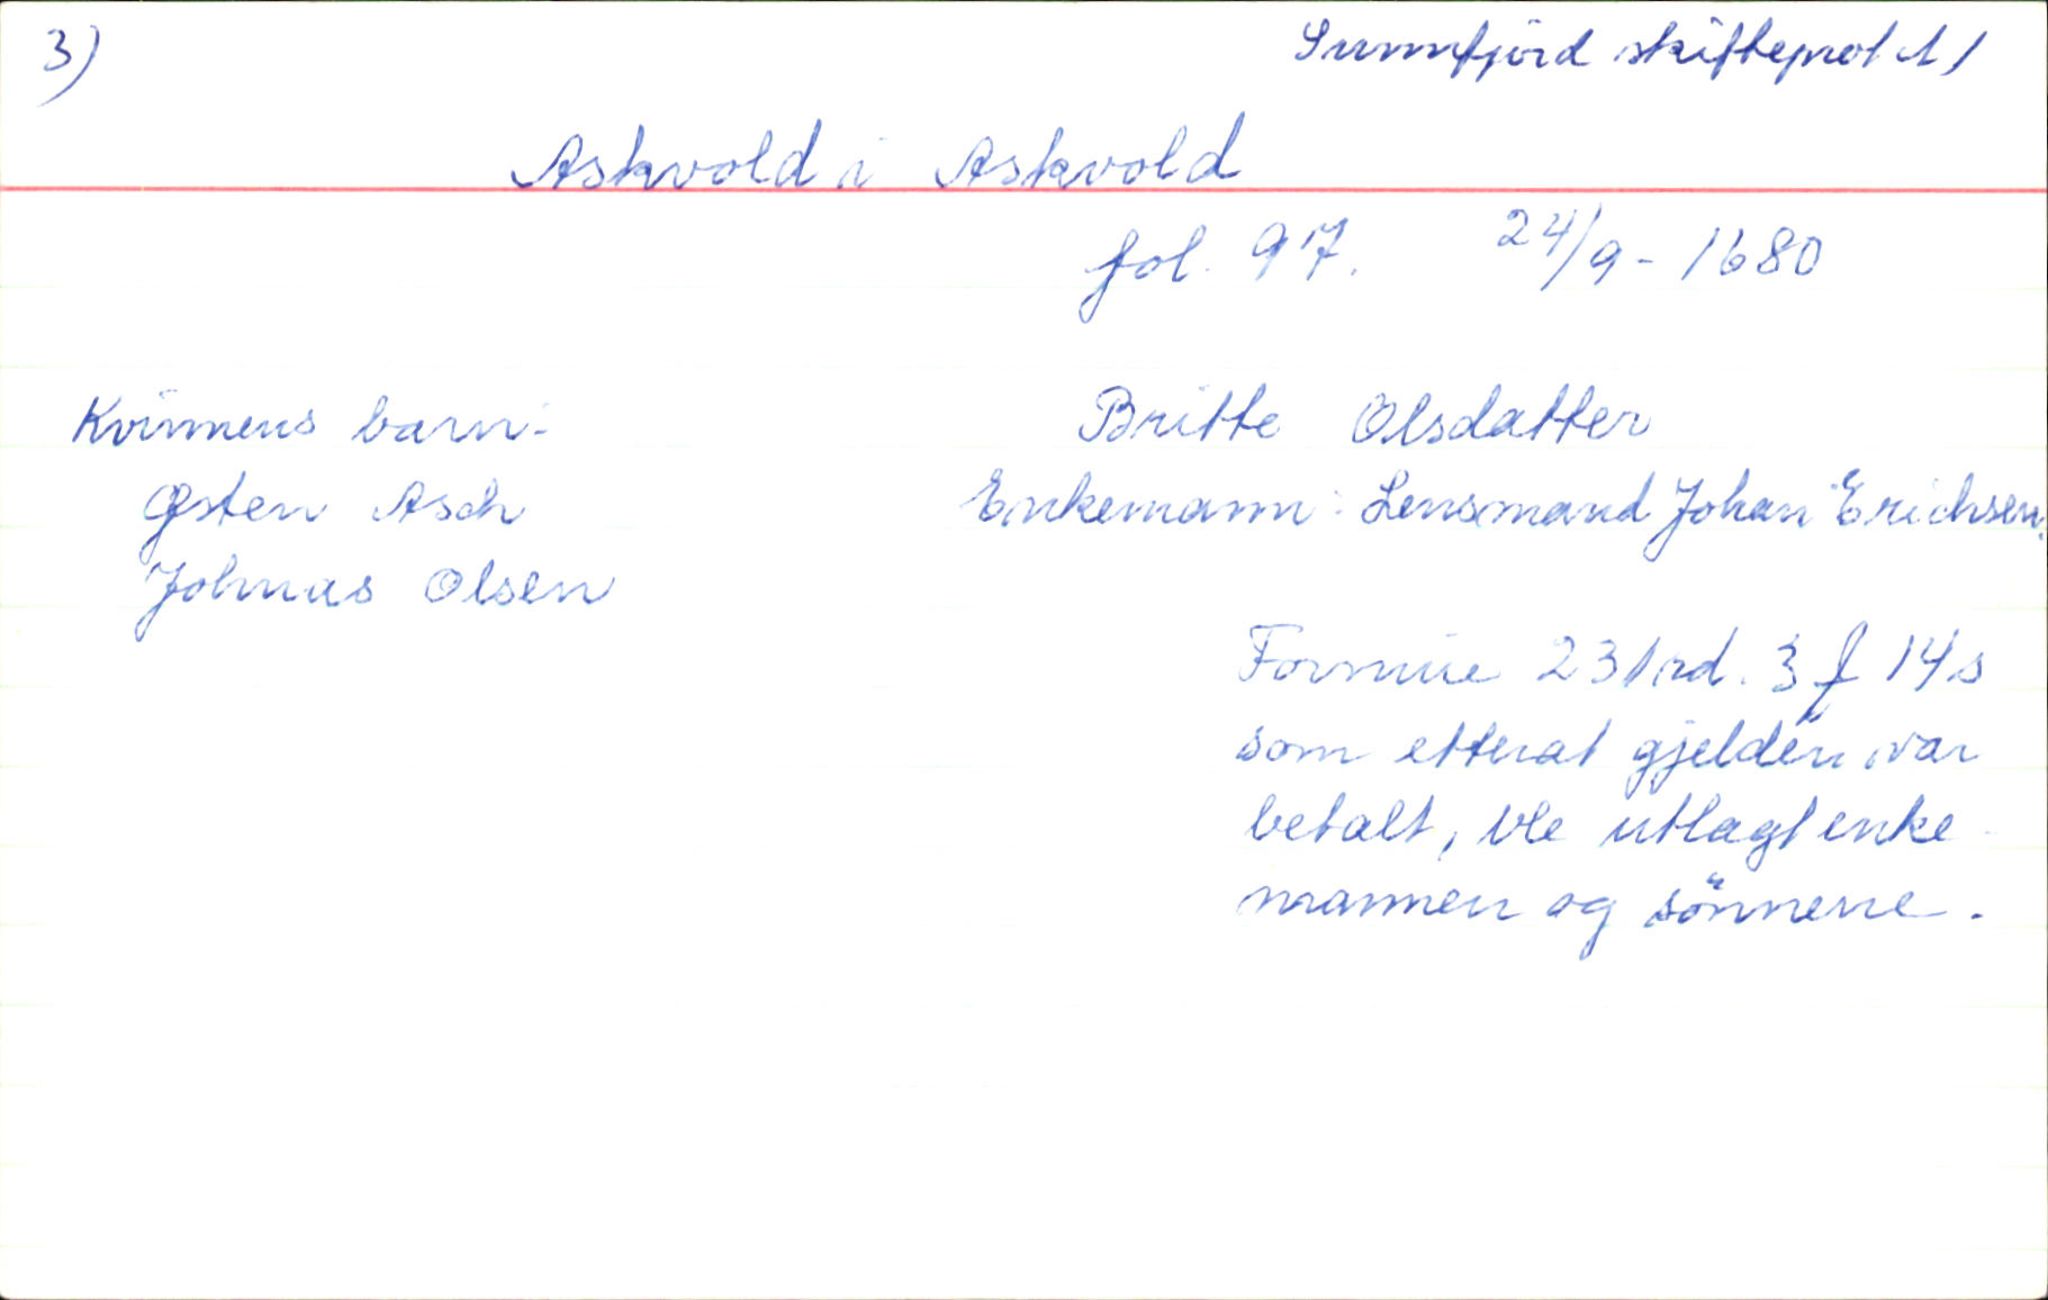 3)
Sunnfjord skifteprot. A 1
Askvold i Askvold
fol. 97. 24/9 - 1680
Kvinnens barn:
Østen Asch
Johnas Olsen
Britte Olsdatter
Enkemann: Lensmand Johan Erichsen.
Formue 231rd. 3 f 14 s
som etterat gjelden var
betalt, ble utlagt enke-
mannen og sönnene.